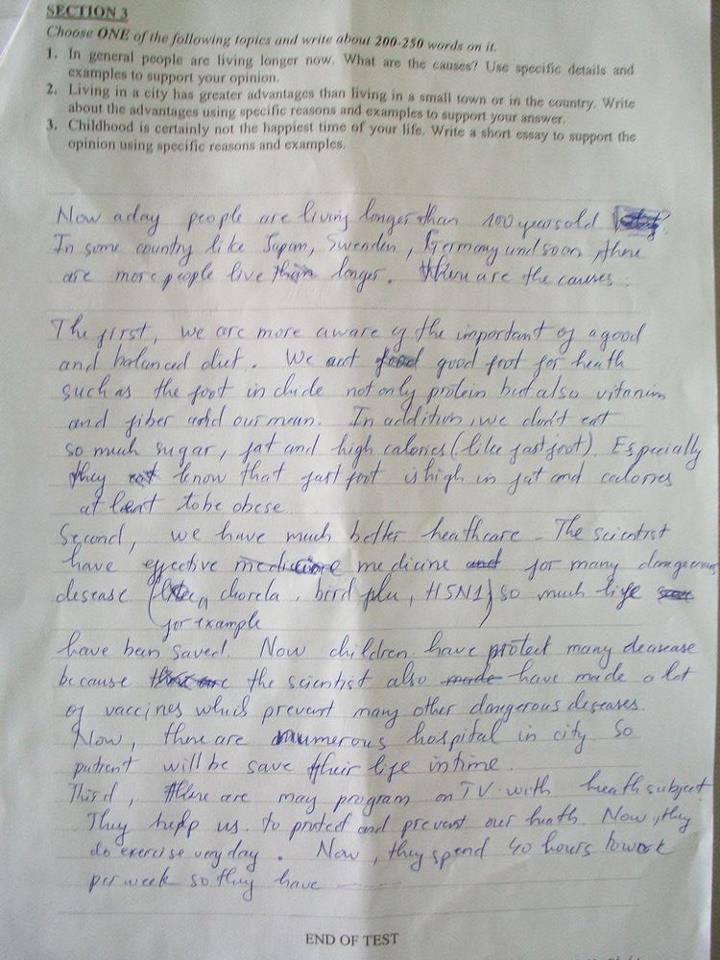 SECTION 3
Choose ONE of the following topics and write about 200-250 words on it.
1. In general people are living longer now. What are the causes? Use specific details and
examples to support your opinion.
2. Living in a city has greater advantages than living in a small town or in the country. Write
about the advantages using specific reasons and examples to support your answer.
3. Childhood is certainly not the happiest time of your life. Write a short essay to support the
opinion using specific reasons and examples.
Now aday people are living longer than 100 years old
In some country like Japan, Swenden, Germany und soon, there
are more people live than longer. There are the causes :
The first, we are more aware of the important of a good
and balanced diet. We good foot for heath
such as the foot include not only protein but also vitanim
and fiber our mean. In addition, we don't eat
so much sugar, fat and high calories (like fastfoot). Especially
they know that fast foot is high in fat and calories
at least tobe obese
Second, we have much better heathcare. The scientist
have effective medicine for many dangerous
desease ( chorela, bird flu, H5N1) so much life
for example
have ben saved. Now children have protect many dearease
because the scientist also have made a lot
of vaccines which prevent many other dangerous deseases.
Now, there are numerous hospital in city so
patient will be save their life intime.
Third, there are may program on TV with heath subject
They help us to protect and prevent our heath. Now, they
do exercise very day. Now, they spend 40 hours towork
per week so they have
END OF TEST